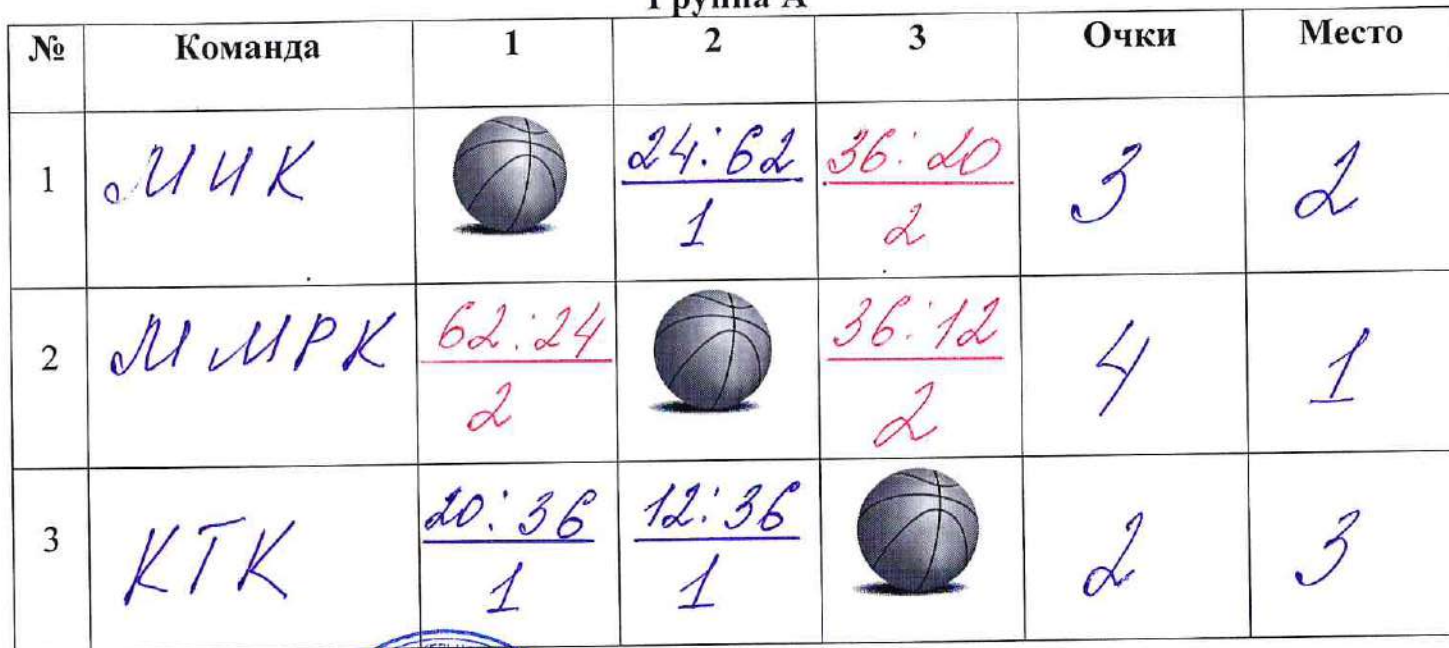 Группа А
№ Команда 1 2 3 Очки Место
1 МИК 24:62 36:20 3 2
1 2
2 ММРК 62:24 36:12 4 1
2 2
3 КТК 20:36 12:36 2 3
1 1